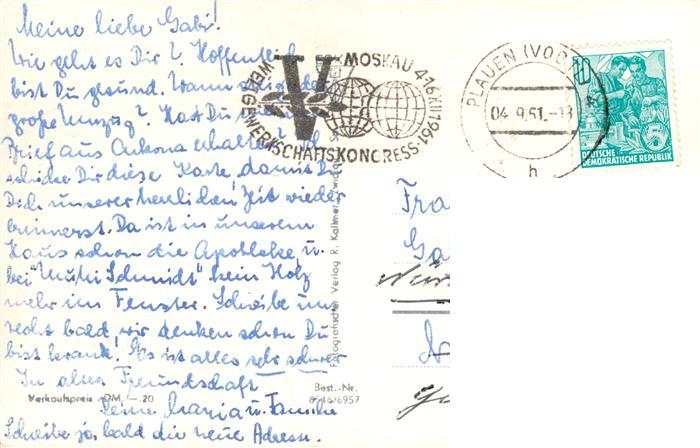 Meine liebe Gabi!
Wie geht es Dir? Hoffentlich
bist Du gesund. Wann
große Umzug? Hast Du
Brief aus Ankona erhalten? Ich
schicke Dir diese Karte, damit Du
Dich unserer herrlichen Zeit wieder
erinnerst. Da ist in unserem
Haus schon die Apotheke, u.
bei "Mutti Schmidt" kein Holz
mehr im Fenster. Schreibe uns
recht bald, wir denken schon Du
bist krank. Es ist alles sehr schwer
In alter Freundschaft
Deine Maria u. Familie
Schreibe ja bald die neue Adresse.
Verkaufspreis DM -.20
Best.-Nr.
8646/6957
Fotografischer Verlag R. Kallmer, Zwickau
V
MOSKAU 4-16.XII.1961
WELTGEWERKSCHAFTSKONGRESS
PLAUEN (VOGTL)
04.9.61.-18
h
10
5
DEUTSCHE
DEMOKRATISCHE REPUBLIK
Fra
Ga